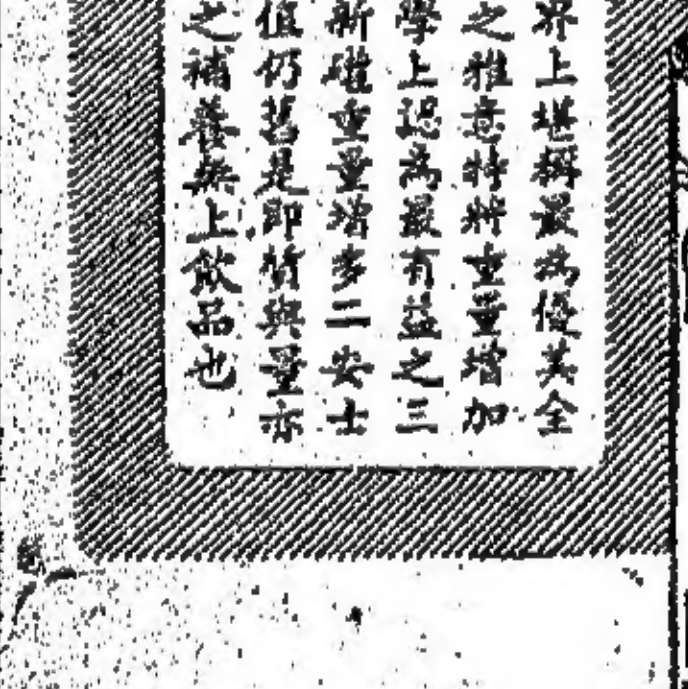 界上堪稱最為優美全
之雅意特將重量增加
學上認為最有益之三
新罐重量增多二安士
值仍舊是即質與量亦
之補養無上飲品也